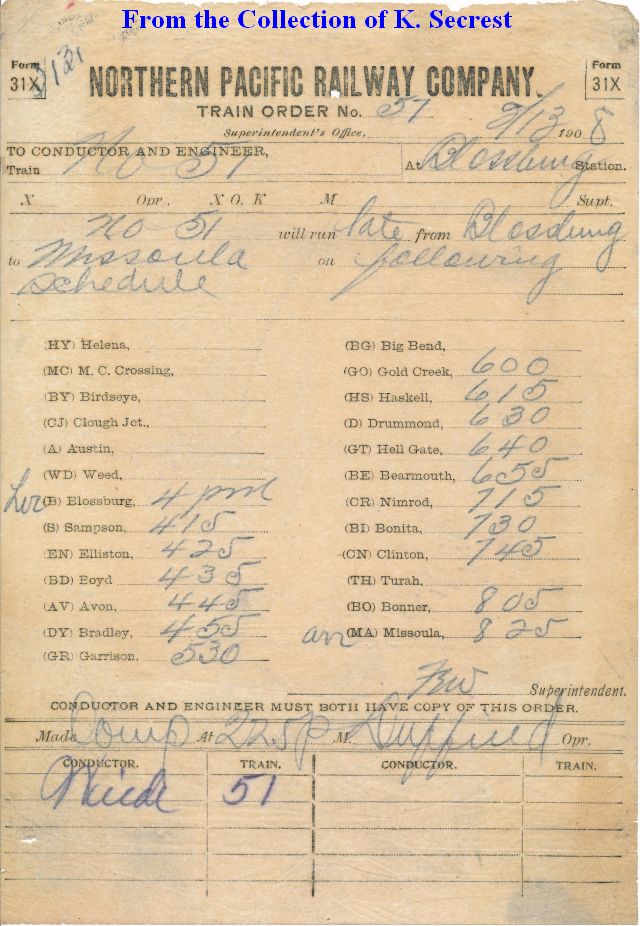 From the Collection of K. Secrest
Form 31X
Form 31X
NORTHERN PACIFIC RAILWAY COMPANY.
TRAIN ORDER No. 57
Superintendent's Office, 2/13 1908
TO CONDUCTOR AND ENGINEER,
Train No 51 At Blossburg Station.
X Opr. X O. K M Supt.
No 51 will run late from Blossburg
to Missoula on following
schedule
(HY) Helena,
(MC) M. C. Crossing,
(BY) Birdseye,
(CJ) Clough Jct.,
(A) Austin,
(WD) Weed,
Lvr (B) Blossburg, 4 pm
(S) Sampson, 415
(EN) Elliston, 425
(BD) Boyd 435
(AV) Avon, 445
(DY) Bradley, 455
(GR) Garrison, 530
(BG) Big Bend,
(GO) Gold Creek, 600
(HS) Haskell, 615
(D) Drummond, 630
(GT) Hell Gate, 640
(BE) Bearmouth, 655
(CR) Nimrod, 715
(BI) Bonita, 730
(CN) Clinton, 745
(TH) Turah,
(BO) Bonner, 805
arr (MA) Missoula, 825
Superintendent.
CONDUCTOR AND ENGINEER MUST BOTH HAVE COPY OF THIS ORDER.
Made Comp At 225 P M. Opr.
CONDUCTOR. TRAIN. CONDUCTOR. TRAIN.
51